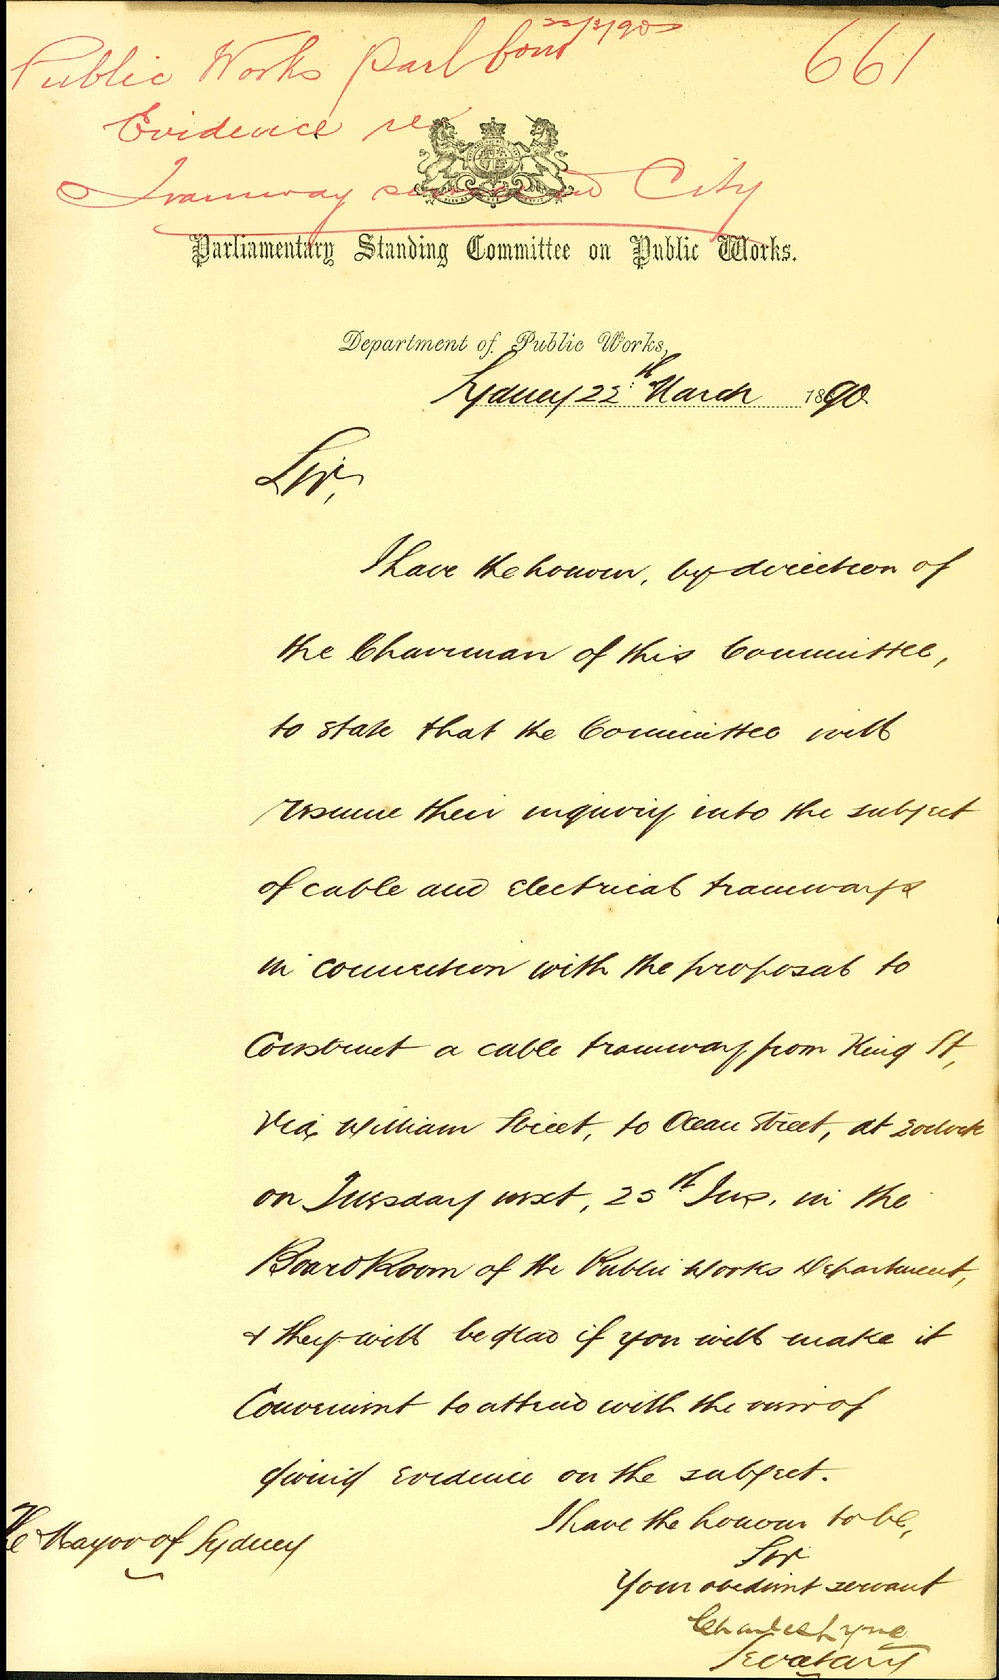 22/3/90
Public Works Parl Com
661
Evidence re
Tramway service in City
Parliamentary Standing Committee on Public Works.
Department of Public Works,
Sydney 22th March 1890
Sir,
I have the honour, by direction of
the Chairman of this Committee,
to state that the Committee will
resume their inquiry into the subject
of cable and electrical tramways
in connection with the proposal to
Construct a cable tramway from King St,
via William Street, to Ocean Street, at 2 o'clock
on Tuesday next, 25th Ins. in the
Board Room of the Public Works Department,
& they will be glad if you will make it
Convenient to attend with the view of
giving evidence on the subject.
I have the honour to be,
Sir
The Mayor of Sydney
Your obedient servant
Charles Lyne
Secretary